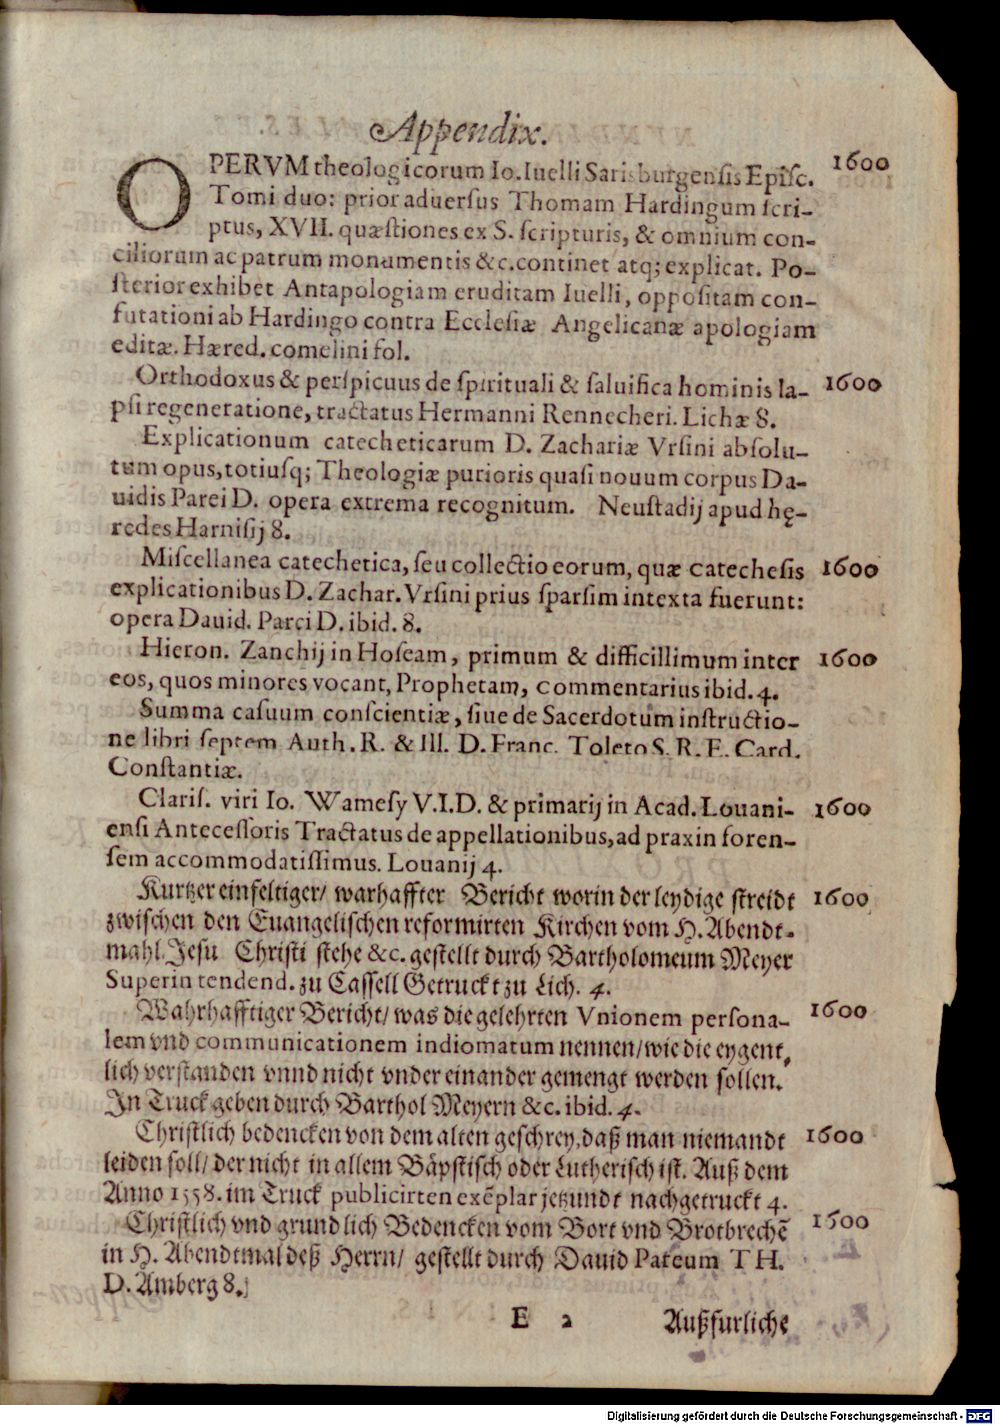 Appendix.
OPERVM theologicorum Io. Iuelli Sarisburgensis Episc. 1600
Tomi duo: prior aduersus Thomam Hardingum scri-
ptus, XVII. quæstiones ex S. scripturis, & omnium con-
ciliorum ac patrum monumentis &c. continet atq; explicat. Po-
sterior exhibet Antapologiam eruditam Iuelli, oppositam con-
futationi ab Hardingo contra Ecclesiæ Angelicanæ apologiam
editæ. Hæred. comelini fol.
Orthodoxus & perspicuus de spirituali & saluifica hominis la- 1600
psi regeneratione, tractatus Hermanni Rennecheri. Lichæ 8.
Explicationum catecheticarum D. Zachariæ Vrsini absolu-
tum opus, totiusq; Theologiæ purioris quasi nouum corpus Da-
uidis Parei D. opera extrema recognitum. Neustadij apud hę-
redes Harnisij 8.
Miscellanea catechetica, seu collectio eorum, quæ catechesis 1600
explicationibus D. Zachar. Vrsini prius sparsim intexta fuerunt:
opera Dauid. Parei D. ibid. 8.
Hieron. Zanchij in Hoseam, primum & difficillimum inter 1600
eos, quos minores vocant, Prophetam, commentarius ibid. 4.
Summa casuum conscientiæ, siue de Sacerdotum instructio-
ne libri septem Auth. R. & Ill. D. Franc. Toleto S. R. E. Card.
Constantiæ.
Clariss. viri Io. Wamesy V.I.D. & primarij in Acad. Louani- 1600
ensi Antecessoris Tractatus de appellationibus, ad praxin foren-
sem accommodatissimus. Louanij 4.
Kurtzer einfeltiger/ warhaffter Bericht worin der leydige streidt 1600
zwischen den Euangelischen reformirten Kirchen vom H. Abendt-
mahl Jesu Christi stehe &c. gestellt durch Bartholomeum Meyer
Superintendend. zu Cassell Getruckt zu Lich. 4.
Wahrhafftiger Bericht/ was die gelehrten Vnionem persona- 1600
lem vnd communicationem indiomatum nennen/ wie die eygent-
lich verstanden vnnd nicht vnder einander gemengt werden sollen.
In Truck geben durch Barthol Meyern &c. ibid. 4.
Christlich bedencken von dem alten geschrey, daß man niemandt 1600
leiden soll/ der nicht in allem Bäpstisch oder Lutherisch ist. Auß dem
Anno 1558. im Truck publicirten exẽplar jetzundt nachgetruckt 4.
Christlich vnd grundlich Bedencken vom Bort vnd Brotbrechẽ 1600
in H. Abendtmal deß Herrn/ gestellt durch Dauid Pareum TH.
D. Amberg 8.
E 2 Außfurliche
Digitalisierung gefördert durch die Deutsche Forschungsgemeinschaft - DFG